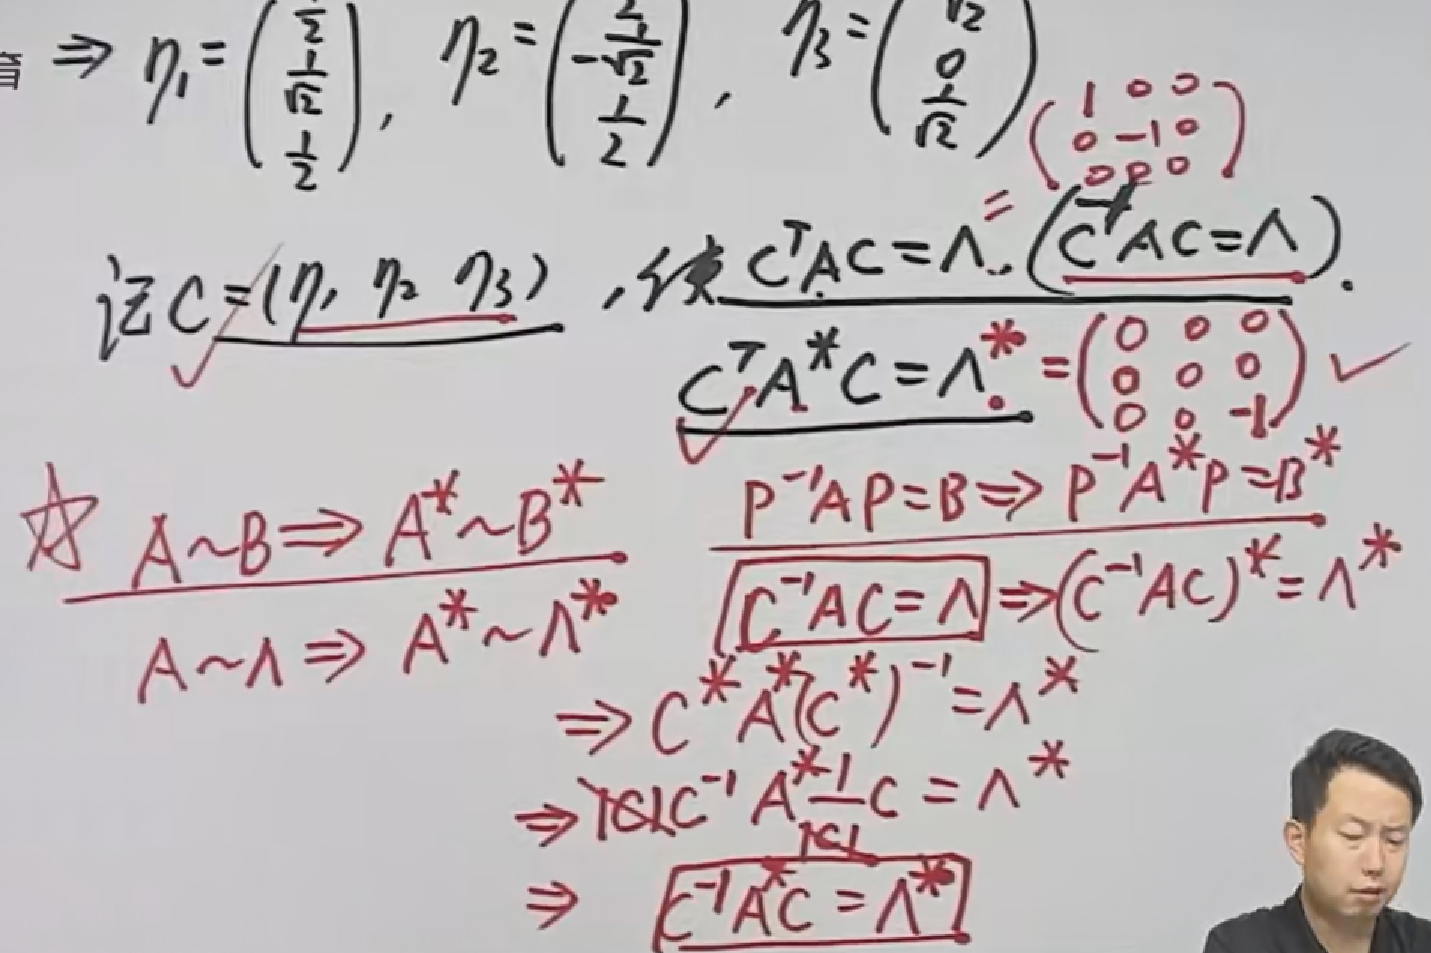 ⇒ η₁ = (1/2, 1/√2, 1/2), η₂ = (1/2, -1/√2, 1/2), η₃ = (√2, 0, 1/√2)
(1 0 0
0 -1 0
0 0 0)
记 C = (η₁ η₂ η₃), 使 CᵀAC = Λ = (C⁻¹AC = Λ).
CᵀA*C = Λ* = (0 0 0
0 0 0
0 0 -1) ✓
☆ A~B ⇒ A*~B*
P⁻¹AP = B ⇒ P⁻¹A*P = B*
A~Λ ⇒ A*~Λ*
C⁻¹AC = Λ ⇒ (C⁻¹AC)* = Λ*
⇒ C*A*(C*)⁻¹ = Λ*
⇒ |C|C⁻¹A* 1/|C| C = Λ*
⇒ C⁻¹A*C = Λ*